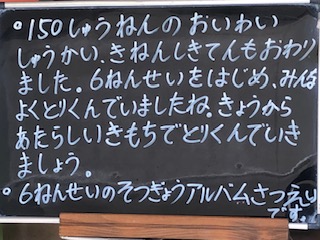 ○150しゅうねんの おいわい
しゅうかい、きねんしきてんもおわり
ました。6ねんせいをはじめ、みんな
よくとりくんでいましたね。きょうから
あたらしいきもちでとりくんでいき
ましょう。
○6ねんせいのそつぎょうアルバムさつえい
です。